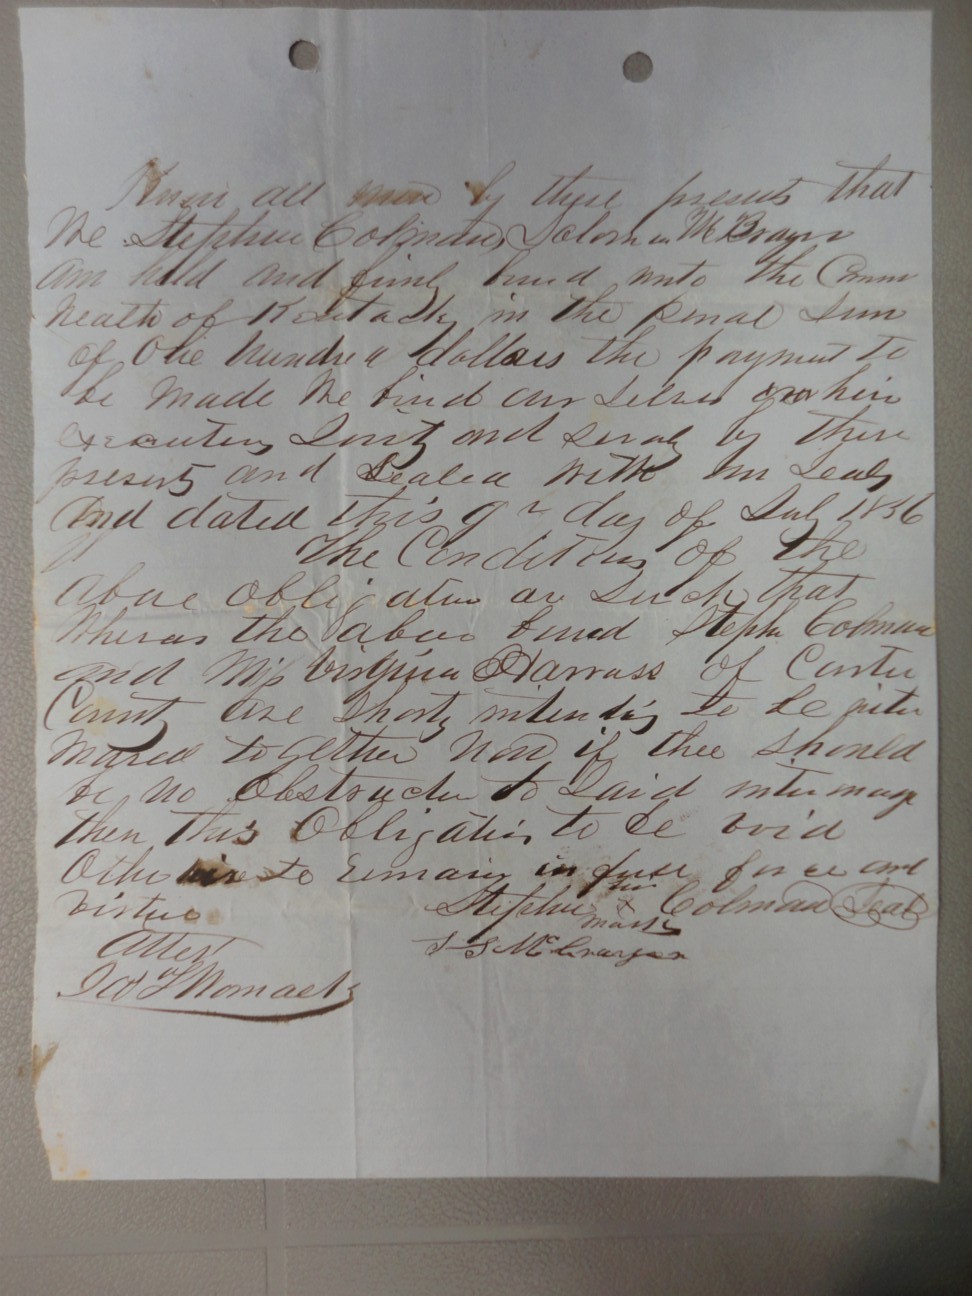 Know all men by these presents that
We Stephen Colman, Solomon McBrayer
am held and firmly bound unto the Comm
wealth of Kentucky in the penal Sum
of One Hundred dollars the payment to
be Made We bind our Selves our heirs
executors Jointly and Severaly by these
presents and Sealed With our Seals
And dated this 9th day of July 1856
The Conditions of the
above obligation are Such that
Wheras the above bound Stephen Colman
and Miss Virginia Harrass of Carter
County are Shortly intending to be inter
together Now if there should
be no Obstruction to Said
then this Obligation to be void
to remain in full force and
virtue
his
Stephen x Colman Seal
mark
S S McBrayer
Attest
Womack